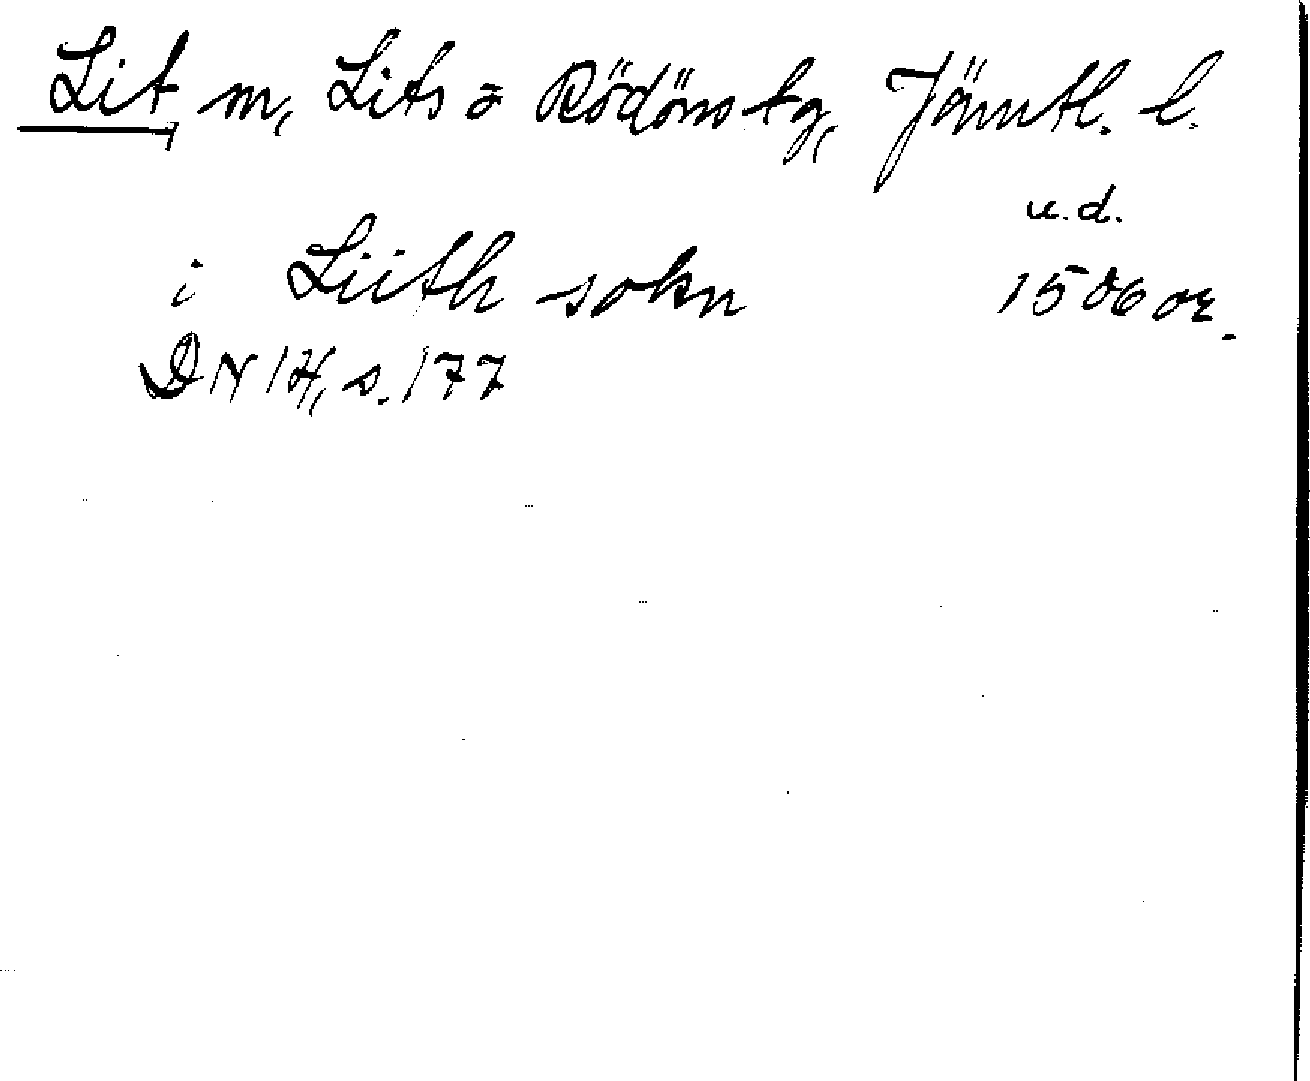 Lit, sn, Lits o Rödöns tg, Jämtl. l.
u.d.
i Liith sokn 1506 or.
DN 14, s. 177